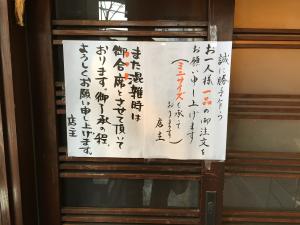 誠に勝手乍ら
お一人様一品の御注文を
お願い申し上げます
（ミニサイズも承て
おります）
店主
また混雑時は
御合席とさせて頂いて
おります。御了承の程、
よろしくお願い申し上げます。
店主